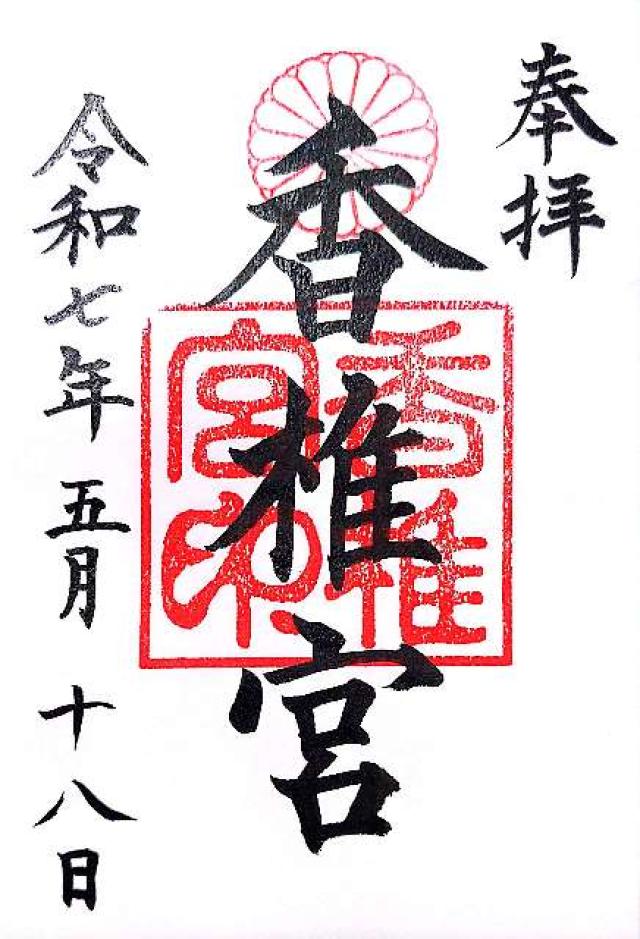 奉拝
香椎宮
香椎
宮印
令和七年五月十八日